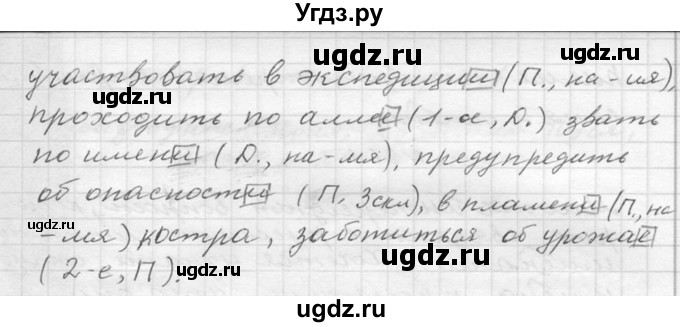 Угдз.ру
участвовать в экспедиции (П., на -ия),
проходить по аллее (1-а, Д.) звать
по имени (Д., на -мя), предупредить
об опасности (П. 3скл), в пламени (П., на
-мя) костра, заботиться об урожае
(2-е, П).
ugdz.ru
ugdz.ru
ugdz.ru
ugdz.ru
ugdz.ru
ugdz.ru
ugdz.ru
ugdz.ru
ugdz.ru
ugdz.ru
ugdz.ru